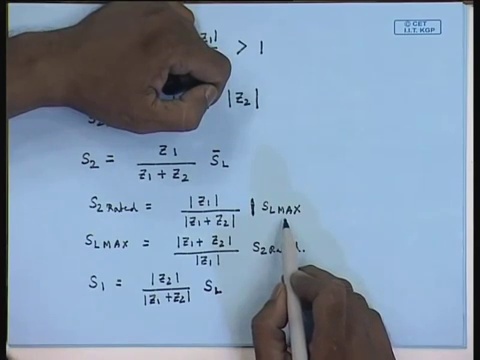 © CET
I.I.T. KGP
|Z1| > 1
|Z2|
S2 = Z1 / Z1 + Z2 S̄L
S2 Rated = |Z1| / |Z1 + Z2| SLMAX
SLMAX = |Z1 + Z2| / |Z1| S2
S1 = |Z2| / |Z1 + Z2| SL